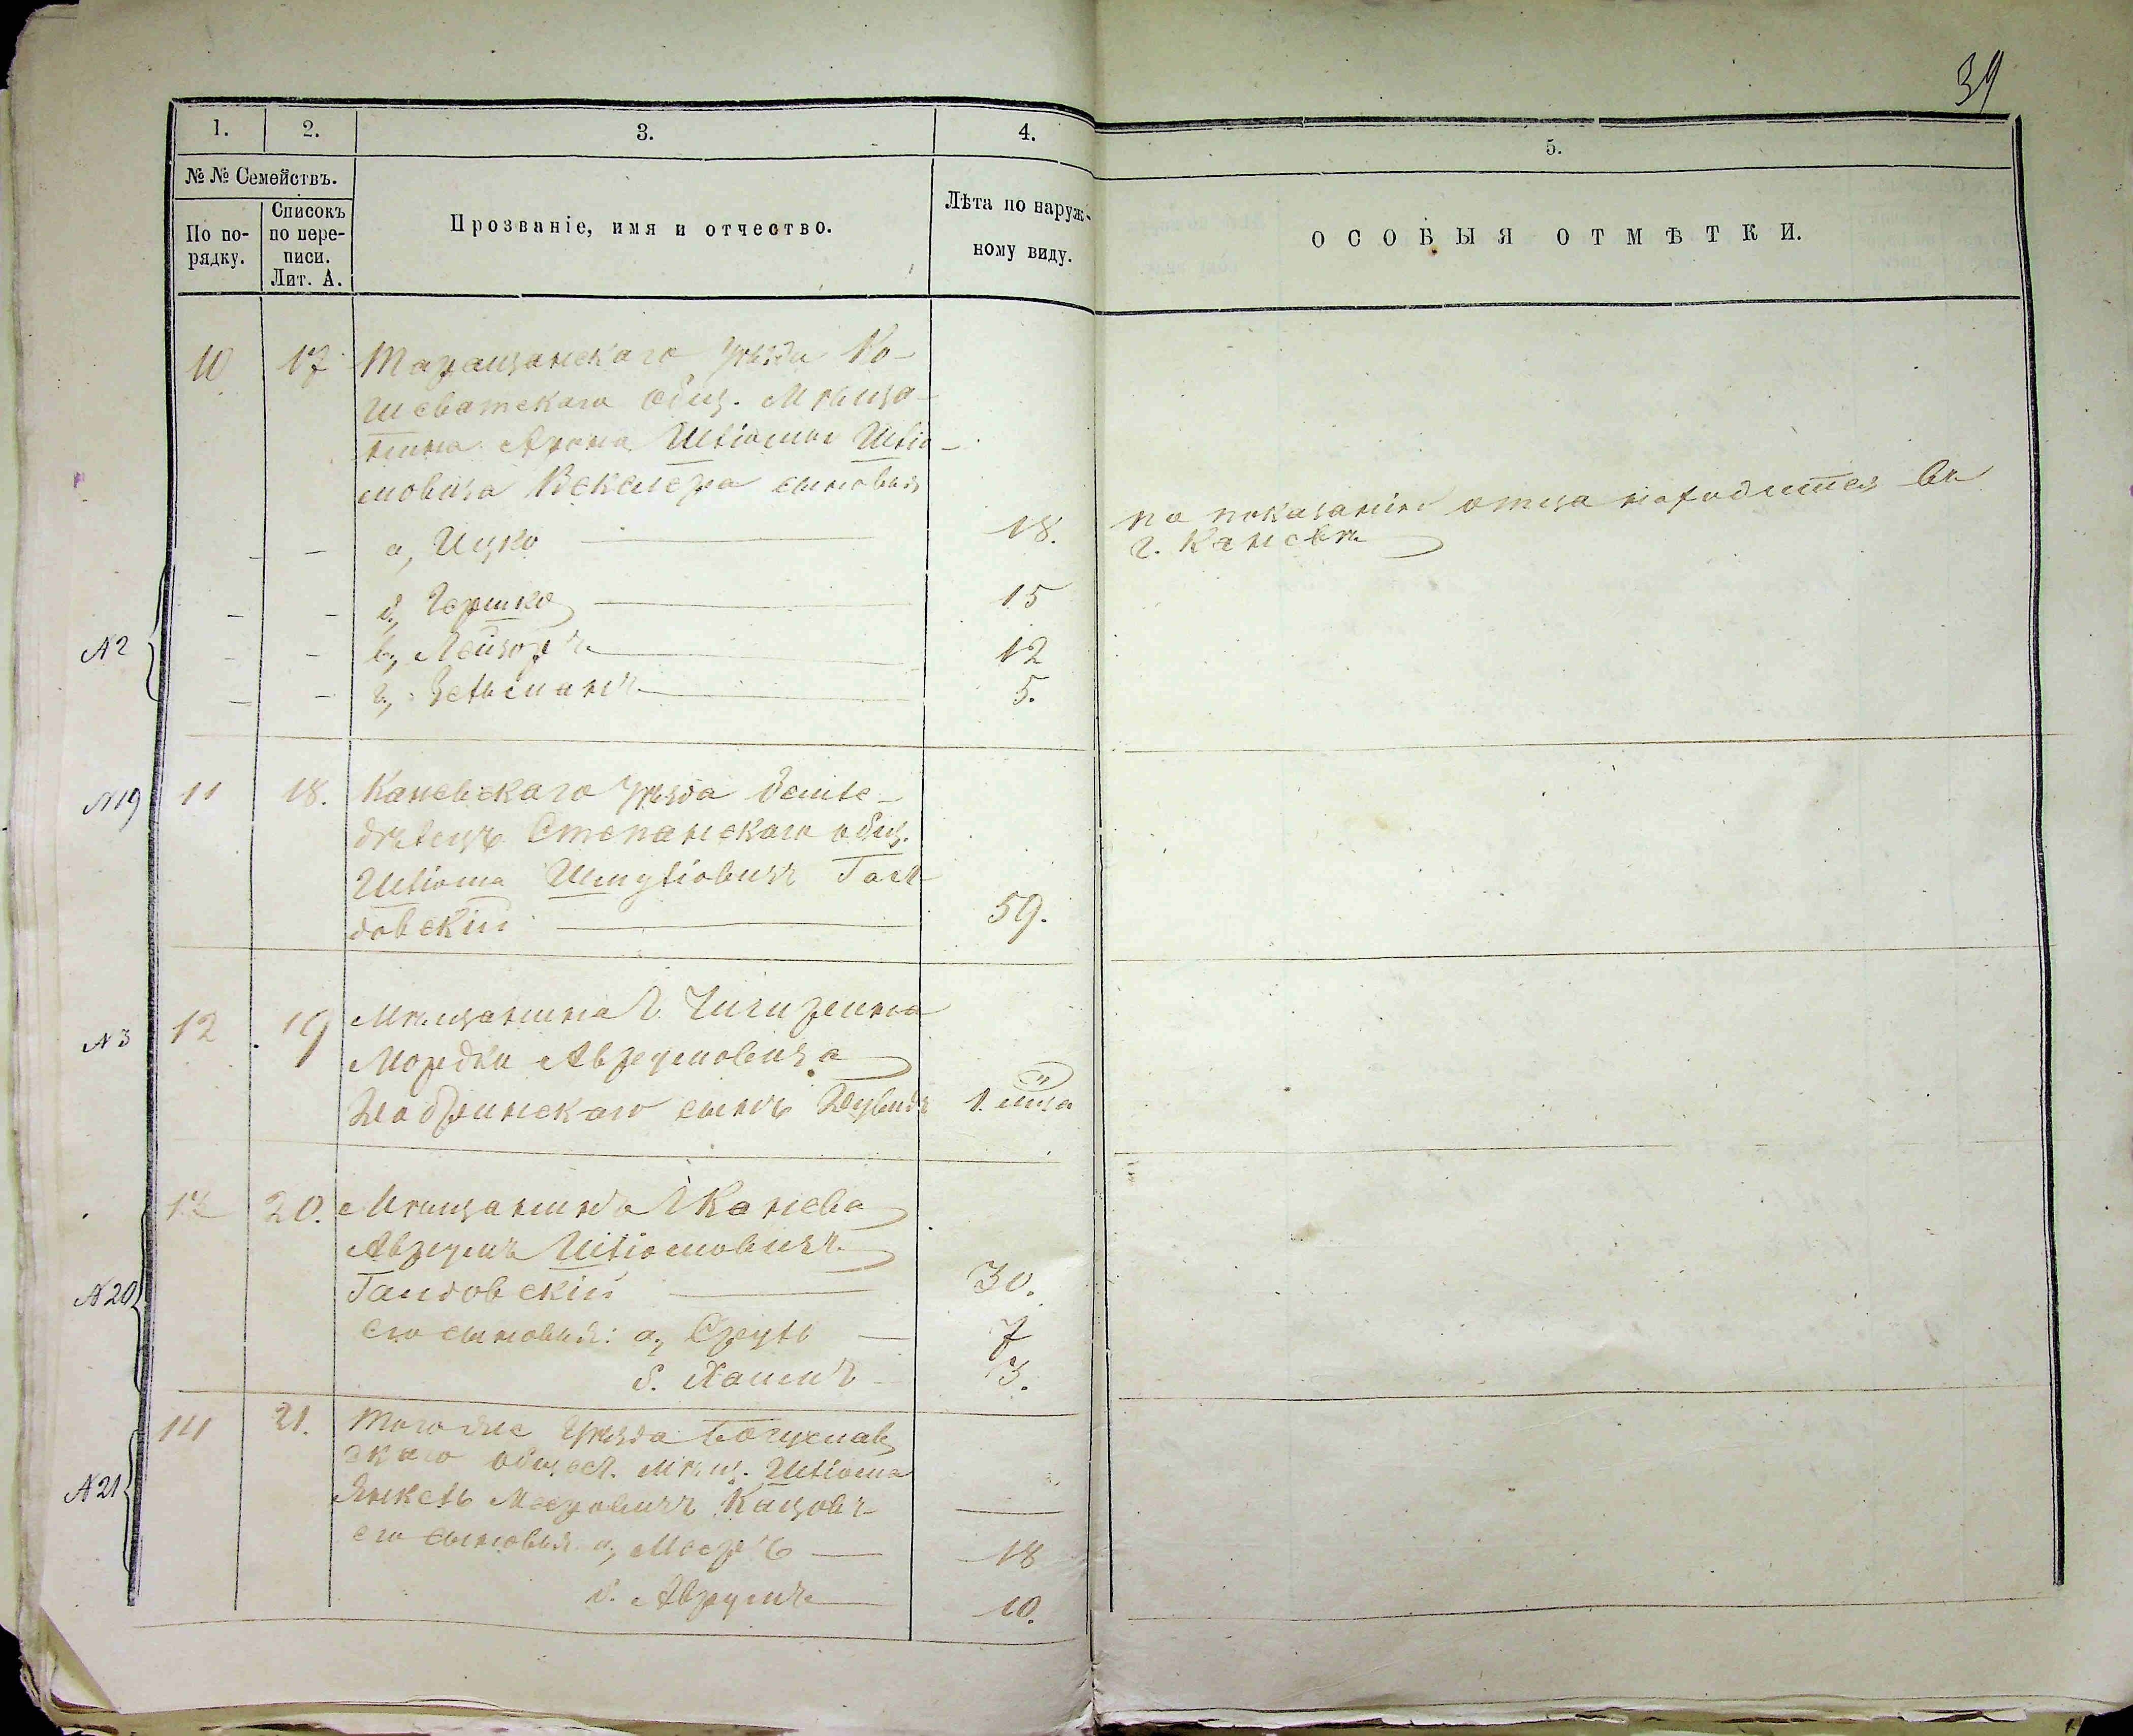 39
1. 2. 3. 4. 5.
№ № Семействъ.
По по-
рядку.
Списокъ
по пере-
писи.
Лит. А.
Прозваніе, имя и отчество.
Лѣта по наруж-
ному виду.
ОСОБЫЯ ОТМѢТКИ.
10 17 Таращанскаго Уѣзда Ко-
шеватскаго общ. Мѣща-
нина Арона Шліомы Шліо-
мовича Векслера сыновья
а, Ицко 18. по показанію отца находится въ
г. Каневѣ
б, Гершко 15
№ 2 в, Лейзоръ 12
г, Зельманъ 5.
№ 19 11 18. Каневскаго Уѣзда земле-
дѣлецъ Степанскаго общ.
Шліома Шмуліовичъ
довскій 59.
№ 3 12 19 Мѣщанина г. Чигирина
Мордки Аврумовича
сынъ 1. мѣсца
13 20. Мѣщанинъ г. Канева
Аврумъ Шліомовичъ
№ 20 Гайдовскій 30.
его сыновья: а, Сруль 7
б. Хаимъ 3.
14 21. Того же Уѣзда Богуслав
скаго общест. мѣщ. Шліома
№ 21 Янкель Мееровичъ
его сыновья а, Мееръ 18
б. Аврумъ 10.